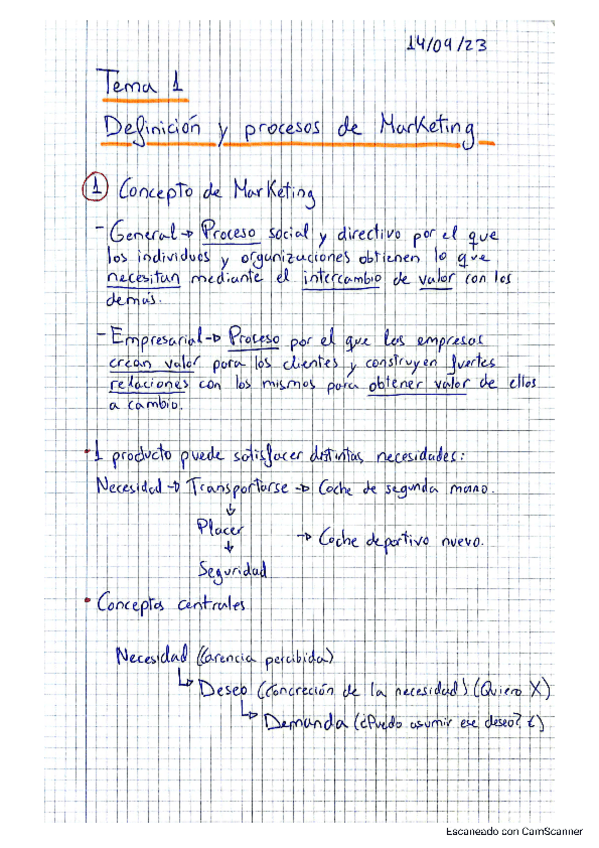 14/09/23
Tema 1
Definición y procesos de Marketing
1 Concepto de Marketing
- General → Proceso social y directivo por el que
los individuos y organizaciones obtienen lo que
necesitan mediante el intercambio de valor con los
demás.
- Empresarial → Proceso por el que las empresas
crean valor para los clientes y construyen fuertes
relaciones con los mismos para obtener valor de ellos
a cambio.
• 1 producto puede satisfacer distintas necesidades:
Necesidad → Transportarse → Coche de segunda mano.
↓
Placer → Coche deportivo nuevo.
↓
Seguridad
• Conceptos centrales
Necesidad (Carencia percibida)
↳ Deseo (Concreción de la necesidad) (Quiero X)
↳ Demanda (¿Puedo asumir ese deseo? €)
Escaneado con CamScanner